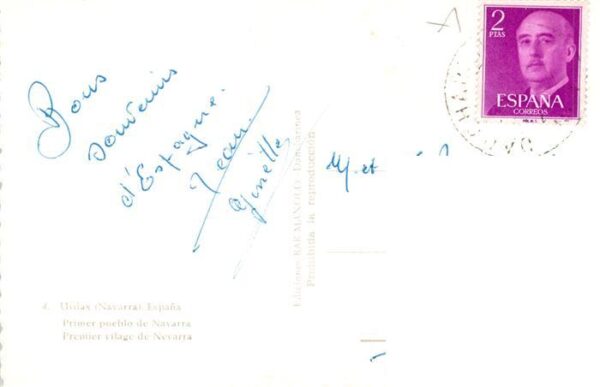 Bons
souvenirs
d'Espagne.
Jean
Ginette
M. et
2
PTAS
ESPAÑA
CORREOS
4. Urdax (Navarra) España
Primer pueblo de Navarra
Premier vilage de Nevarra
Prohibida la reproducción